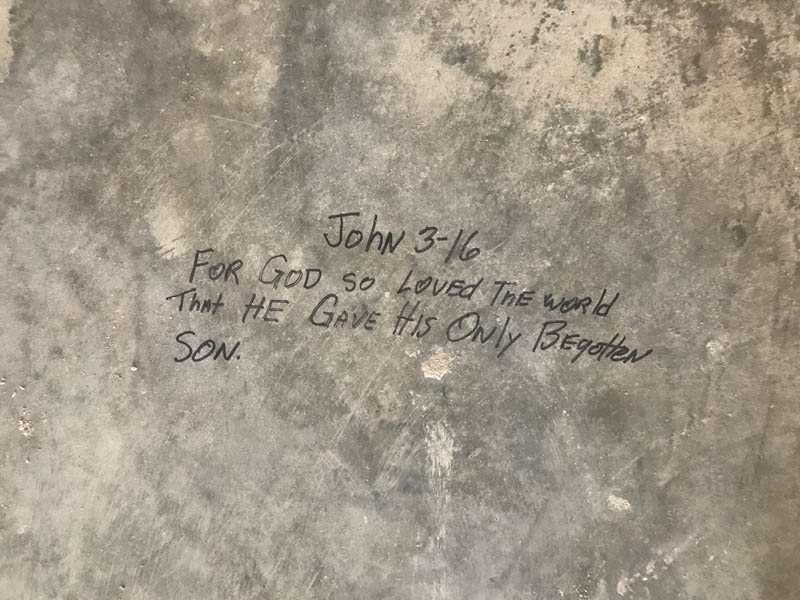 John 3-16
For God so Loved The world
That HE Gave His Only Begotten
Son.